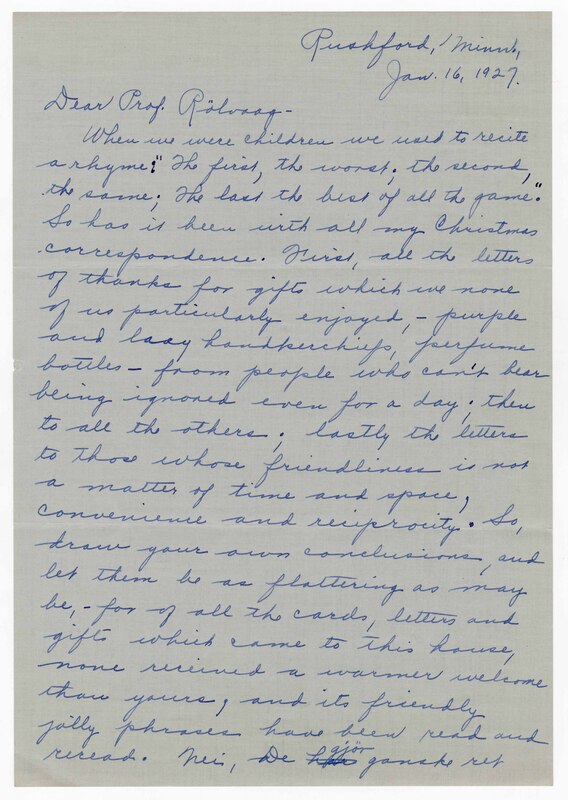 Rushford, Minn.,
Jan. 16, 1927.
Dear Prof. Rölvaag -
When we were children we used to recite
a rhyme: "The first, the worst; the second,
the same; The last the best of all the game".
So has it been with all my Christmas
correspondence. First, all the letters
of thanks for gifts which we none
of us particularly enjoyed, - purple
and lacy handkerchiefs, perfume
bottles - from people who can't bear
being ignored even for a day; then
to all the others; lastly the letters
to those whose friendliness is not
a matter of time and space,
convenience and reciprocity. So,
draw your own conclusions, and
let them be as flattering as may
be, - for of all the cards, letters and
gifts which came to this house,
none received a warmer welcome
than yours, and its friendly
jolly phrases have been read and
reread. Nei, De gjör ganske ret